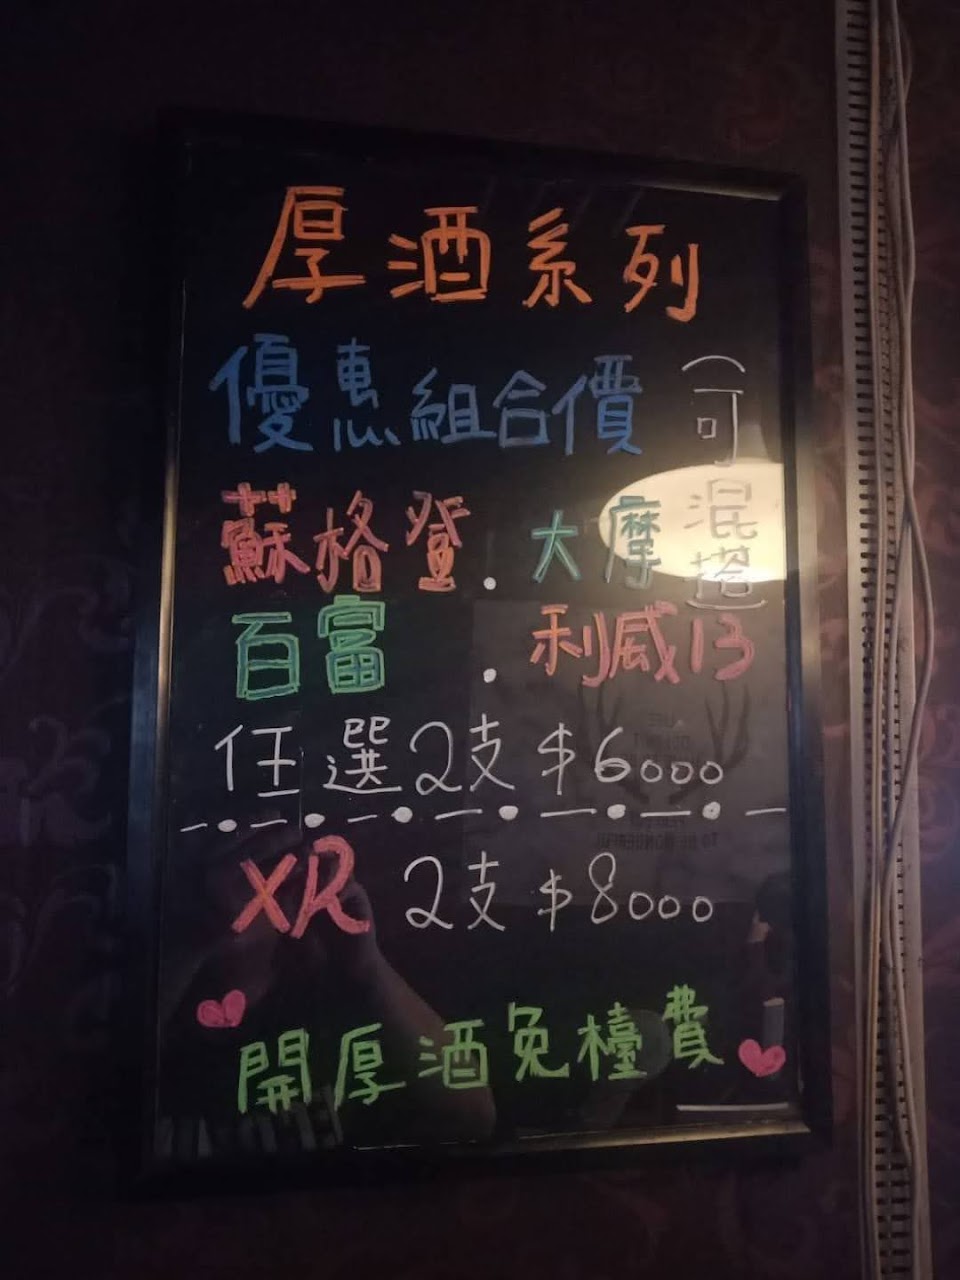 厚酒系列
優惠組合價 (可混搭
蘇格登.大摩
百富.利威13
任選2支$6000
XR 2支$8000
開厚酒免檯費